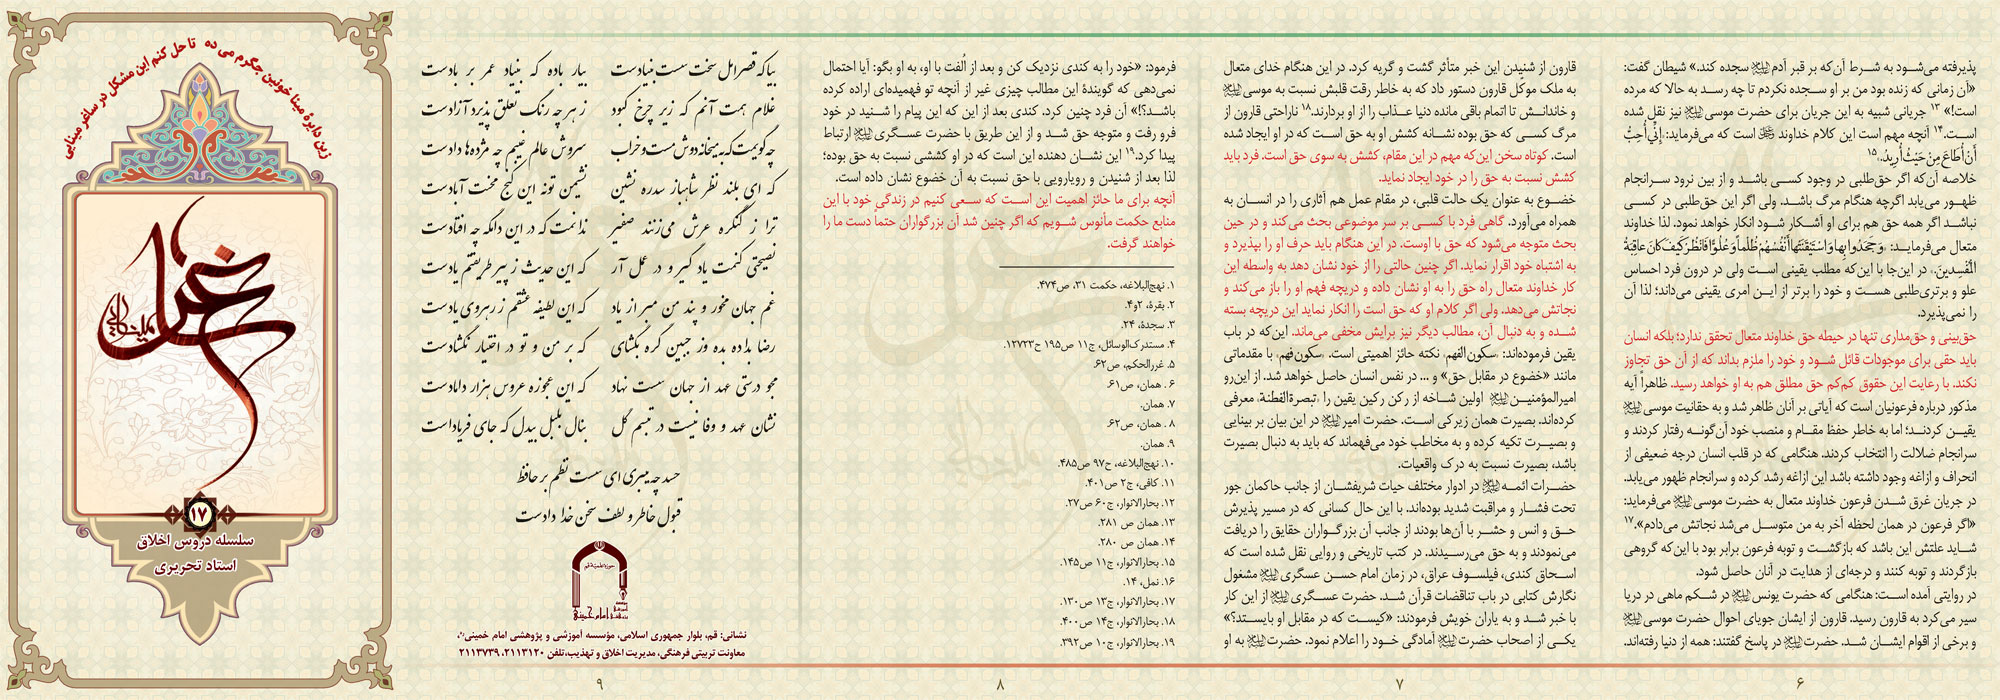 پذیرفته می‌شود به شرط آن‌که بر قبر آدم سجده کند.» شیطان گفت:
«آن زمانی که زنده بود من بر او سجده نکردم تا چه رسد به حالا که مرده
است!» ۱۳ جریانی شبیه به این جریان برای حضرت موسی نیز نقل شده
است.۱۴ آنچه مهم است این کلام خداوند است که می‌فرماید: إِنِّي أُحِبُّ
أَنْ أُطَاعَ مِنْ حَيْثُ أُرِيدُ.۱۵
خلاصه آن‌که اگر حق‌طلبی در وجود کسی باشد و از بین نرود سرانجام
ظهور می‌یابد اگرچه هنگام مرگ باشد. ولی اگر این حق‌طلبی در کسی
نباشد اگر همه حق هم برای او آشکار شود انکار خواهد نمود. لذا خداوند
متعال می‌فرماید: وَجَحَدُوا بِهَا وَاسْتَيْقَنَتْهَا أَنْفُسُهُمْ ظُلْماً وَعُلُوًّا فَانْظُرْ كَيْفَ كَانَ عَاقِبَةُ
الْمُفْسِدِينَ. در این‌جا با این‌که مطلب یقینی است ولی در درون فرد احساس
علو و برتری‌طلبی هست و خود را برتر از این امری یقینی می‌داند؛ لذا آن
را نمی‌پذیرد.
حق‌بینی و حق‌مداری تنها در حیطه حق خداوند متعال تحقق ندارد؛ بلکه انسان
باید حقی برای موجودات قائل شود و خود را ملزم بداند که از آن حق تجاوز
نکند. با رعایت این حقوق کم‌کم حق مطلق هم به او خواهد رسید. ظاهراً آیه
مذکور درباره فرعونیان است که آیاتی بر آنان ظاهر شد و به حقانیت موسی
یقین کردند؛ اما به خاطر حفظ مقام و منصب خود آن‌گونه رفتار کردند و
سرانجام ضلالت را انتخاب کردند. هنگامی که در قلب انسان درجه ضعیفی از
انحراف و ازاغه وجود داشته باشد این ازاغه رشد کرده و سرانجام ظهور می‌یابد.
در جریان غرق شدن فرعون خداوند متعال به حضرت موسی می‌فرماید:
«اگر فرعون در همان لحظه آخر به من متوسل می‌شد نجاتش می‌دادم».۱۷
شاید علتش این باشد که بازگشت و توبه فرعون برابر بود با این‌که گروهی
بازگردند و توبه کنند و درجه‌ای از هدایت در آنان حاصل شود.
در روایتی آمده است: هنگامی که حضرت یونس در شکم ماهی در دریا
سیر می‌کرد به قارون رسید. قارون از ایشان جویای احوال حضرت موسی
و برخی از اقوام ایشان شد. حضرت در پاسخ گفتند: همه از دنیا رفته‌اند.
۶
قارون از شنیدن این خبر متأثر گشت و گریه کرد. در این هنگام خدای متعال
به ملک موکل قارون دستور داد که به خاطر رقت قلبش نسبت به موسی
و خاندانش تا اتمام باقی مانده دنیا عذاب را از او بردارند.۱۸ ناراحتی قارون از
مرگ کسی که حق بوده نشانه کشش او به حق است که در او ایجاد شده
است. کوتاه سخن این‌که مهم در این مقام، کشش به سوی حق است. فرد باید
کشش نسبت به حق را در خود ایجاد نماید.
خضوع به عنوان یک حالت قلبی، در مقام عمل هم آثاری را در انسان به
همراه می‌آورد. گاهی فرد با کسی بر سر موضوعی بحث می‌کند و در حین
بحث متوجه می‌شود که حق با اوست. در این هنگام باید حرف او را بپذیرد و
به اشتباه خود اقرار نماید. اگر چنین حالتی را از خود نشان دهد به واسطه این
کار خداوند متعال راه حق را به او نشان داده و دریچه فهم او را باز می‌کند و
نجاتش می‌دهد. ولی اگر کلام او که حق است را انکار نماید این دریچه بسته
شده و به دنبال آن، مطالب دیگر نیز برایش مخفی می‌ماند. این‌که در باب
یقین فرموده‌اند: سکون الفهم نکته حائز اهمیتی است. «سکون فهم» با مقدماتی
مانند «خضوع در مقابل حق» و ... در نفس انسان حاصل خواهد شد. از این‌رو
امیرالمؤمنین اولین شاخه از رکن رکین یقین را «تبصرة الفطنة» معرفی
کرده‌اند. بصیرت همان زیرکی است. حضرت امیر در این بیان بر بینایی
و بصیرت تکیه کرده و به مخاطب خود می‌فهماند که باید به دنبال بصیرت
باشد، بصیرت نسبت به درک واقعیات.
حضرات ائمه در ادوار مختلف حیات شریفشان از جانب حاکمان جور
تحت فشار و مراقبت شدید بوده‌اند. با این حال کسانی که در مسیر پذیرش
حق و انس و حشر با آن‌ها بودند از جانب آن بزرگواران حقایق را دریافت
می‌نمودند و به حق می‌رسیدند. در کتب تاریخی و روایی نقل شده است که
اسحاق کندی، فیلسوف عراق، در زمان امام حسن عسگری مشغول
نگارش کتابی در باب تناقضات قرآن شد. حضرت عسگری از این کار
با خبر شد و به یاران خویش فرمودند: «کیست که در مقابل او بایستد؟»
یکی از اصحاب حضرت آمادگی خود را اعلام نمود. حضرت به او
۷
فرمود: «خود را به کندی نزدیک کن و بعد از اُلفت با او، به او بگو: آیا احتمال
نمی‌دهی که گویندهٔ این مطالب چیزی غیر از آنچه تو فهمیده‌ای اراده کرده
باشد؟!» آن فرد چنین کرد. کندی بعد از این که این پیام را شنید در خود
فرو رفت و متوجه حق شد و از این طریق با حضرت عسگری ارتباط
پیدا کرد.۱۹ این نشان دهنده این است که در او کششی نسبت به حق بوده؛
لذا بعد از شنیدن و رویارویی با حق نسبت به آن خضوع نشان داده است.
آنچه برای ما حائز اهمیت این است که سعی کنیم در زندگی خود با این
منابع حکمت مأنوس شویم که اگر چنین شد آن بزرگواران حتماً دست ما را
خواهند گرفت.
۱. نهج‌البلاغه، حکمت ۳۱، ص۴۷۴.
۲. بقرة، ۲و۴.
۳. سجدة، ۲۴.
۴. مستدرک‌الوسائل، ج۱۱ ص۱۹۵ ح۱۲۷۲۳.
۵. غررالحکم، ص۶۲.
۶. همان، ص۶۱.
۷. همان.
۸. همان، ص۶۲
۹. همان.
۱۰. نهج‌البلاغه، ح۹۷ ص۴۸۵.
۱۱. کافی، ج۲ ص۴۰۱.
۱۲. بحارالانوار، ج۶۰ ص۲۷.
۱۳. همان ص ۲۸۱.
۱۴. همان ص ۲۸۰.
۱۵. بحارالانوار، ج۱۱ ص۱۴۵.
۱۶. نمل، ۱۴.
۱۷. بحارالانوار، ج۱۳ ص۱۳۰.
۱۸. بحارالانوار، ج۱۴ ص۴۰۰.
۱۹. بحارالانوار، ج۱۰ ص۳۹۲.
۸
بیا که قصر امل سخت سست بنیادست بیار باده که بنیاد عمر بر بادست
غلام همت آنم که زیر چرخ کبود ز هر چه رنگ تعلق پذیرد آزادست
چه گویمت که به میخانه دوش مست و خراب سروش عالم غیبم چه مژده‌ها دادست
که ای بلند نظر شاهباز سدره نشین نشیمن تو نه این کنج محنت آبادست
ترا ز کنگره عرش می‌زنند صفیر ندانمت که در این دامگه چه افتادست
نصیحتی کنمت یاد گیر و در عمل آر که این حدیث ز پیر طریقتم یادست
غم جهان مخور و پند من مبر از یاد که این لطیفه عشقم ز رهروی یادست
رضا بداده بده وز جبین گره بگشای که بر من و تو در اختیار نگشادست
مجو درستی عهد از جهان سست نهاد که این عجوزه عروس هزار دامادست
نشان عهد و وفا نیست در تبسم گل بنال بلبل بیدل که جای فریاداست
حسد چه میبری ای سست نظم بر حافظ
قبول خاطر و لطف سخن خدا دادست
نشانی: قم، بلوار جمهوری اسلامی، مؤسسه آموزشی و پژوهشی امام خمینی
معاونت تربیتی فرهنگی، مدیریت اخلاق و تهذیب،تلفن ۲۱۱۳۱۲۰، ۲۱۱۳۷۳۹
۹
زین دایرهٔ مینا خونین جگرم می ده تا حل کنم این مشکل در ساغر مینایی
۱۷
سلسله دروس اخلاق
استاد تحریری